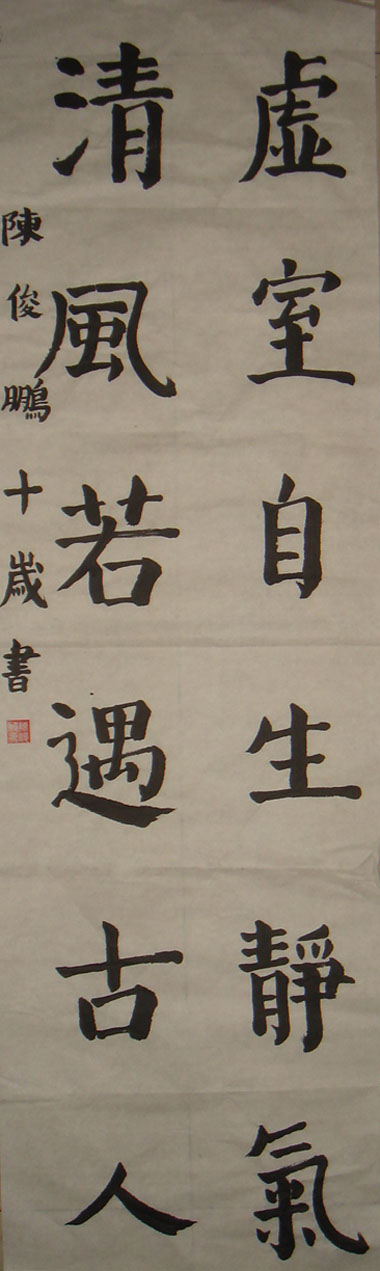 虛室自生靜氣
清風若遇古人
陳俊鵬十歲書